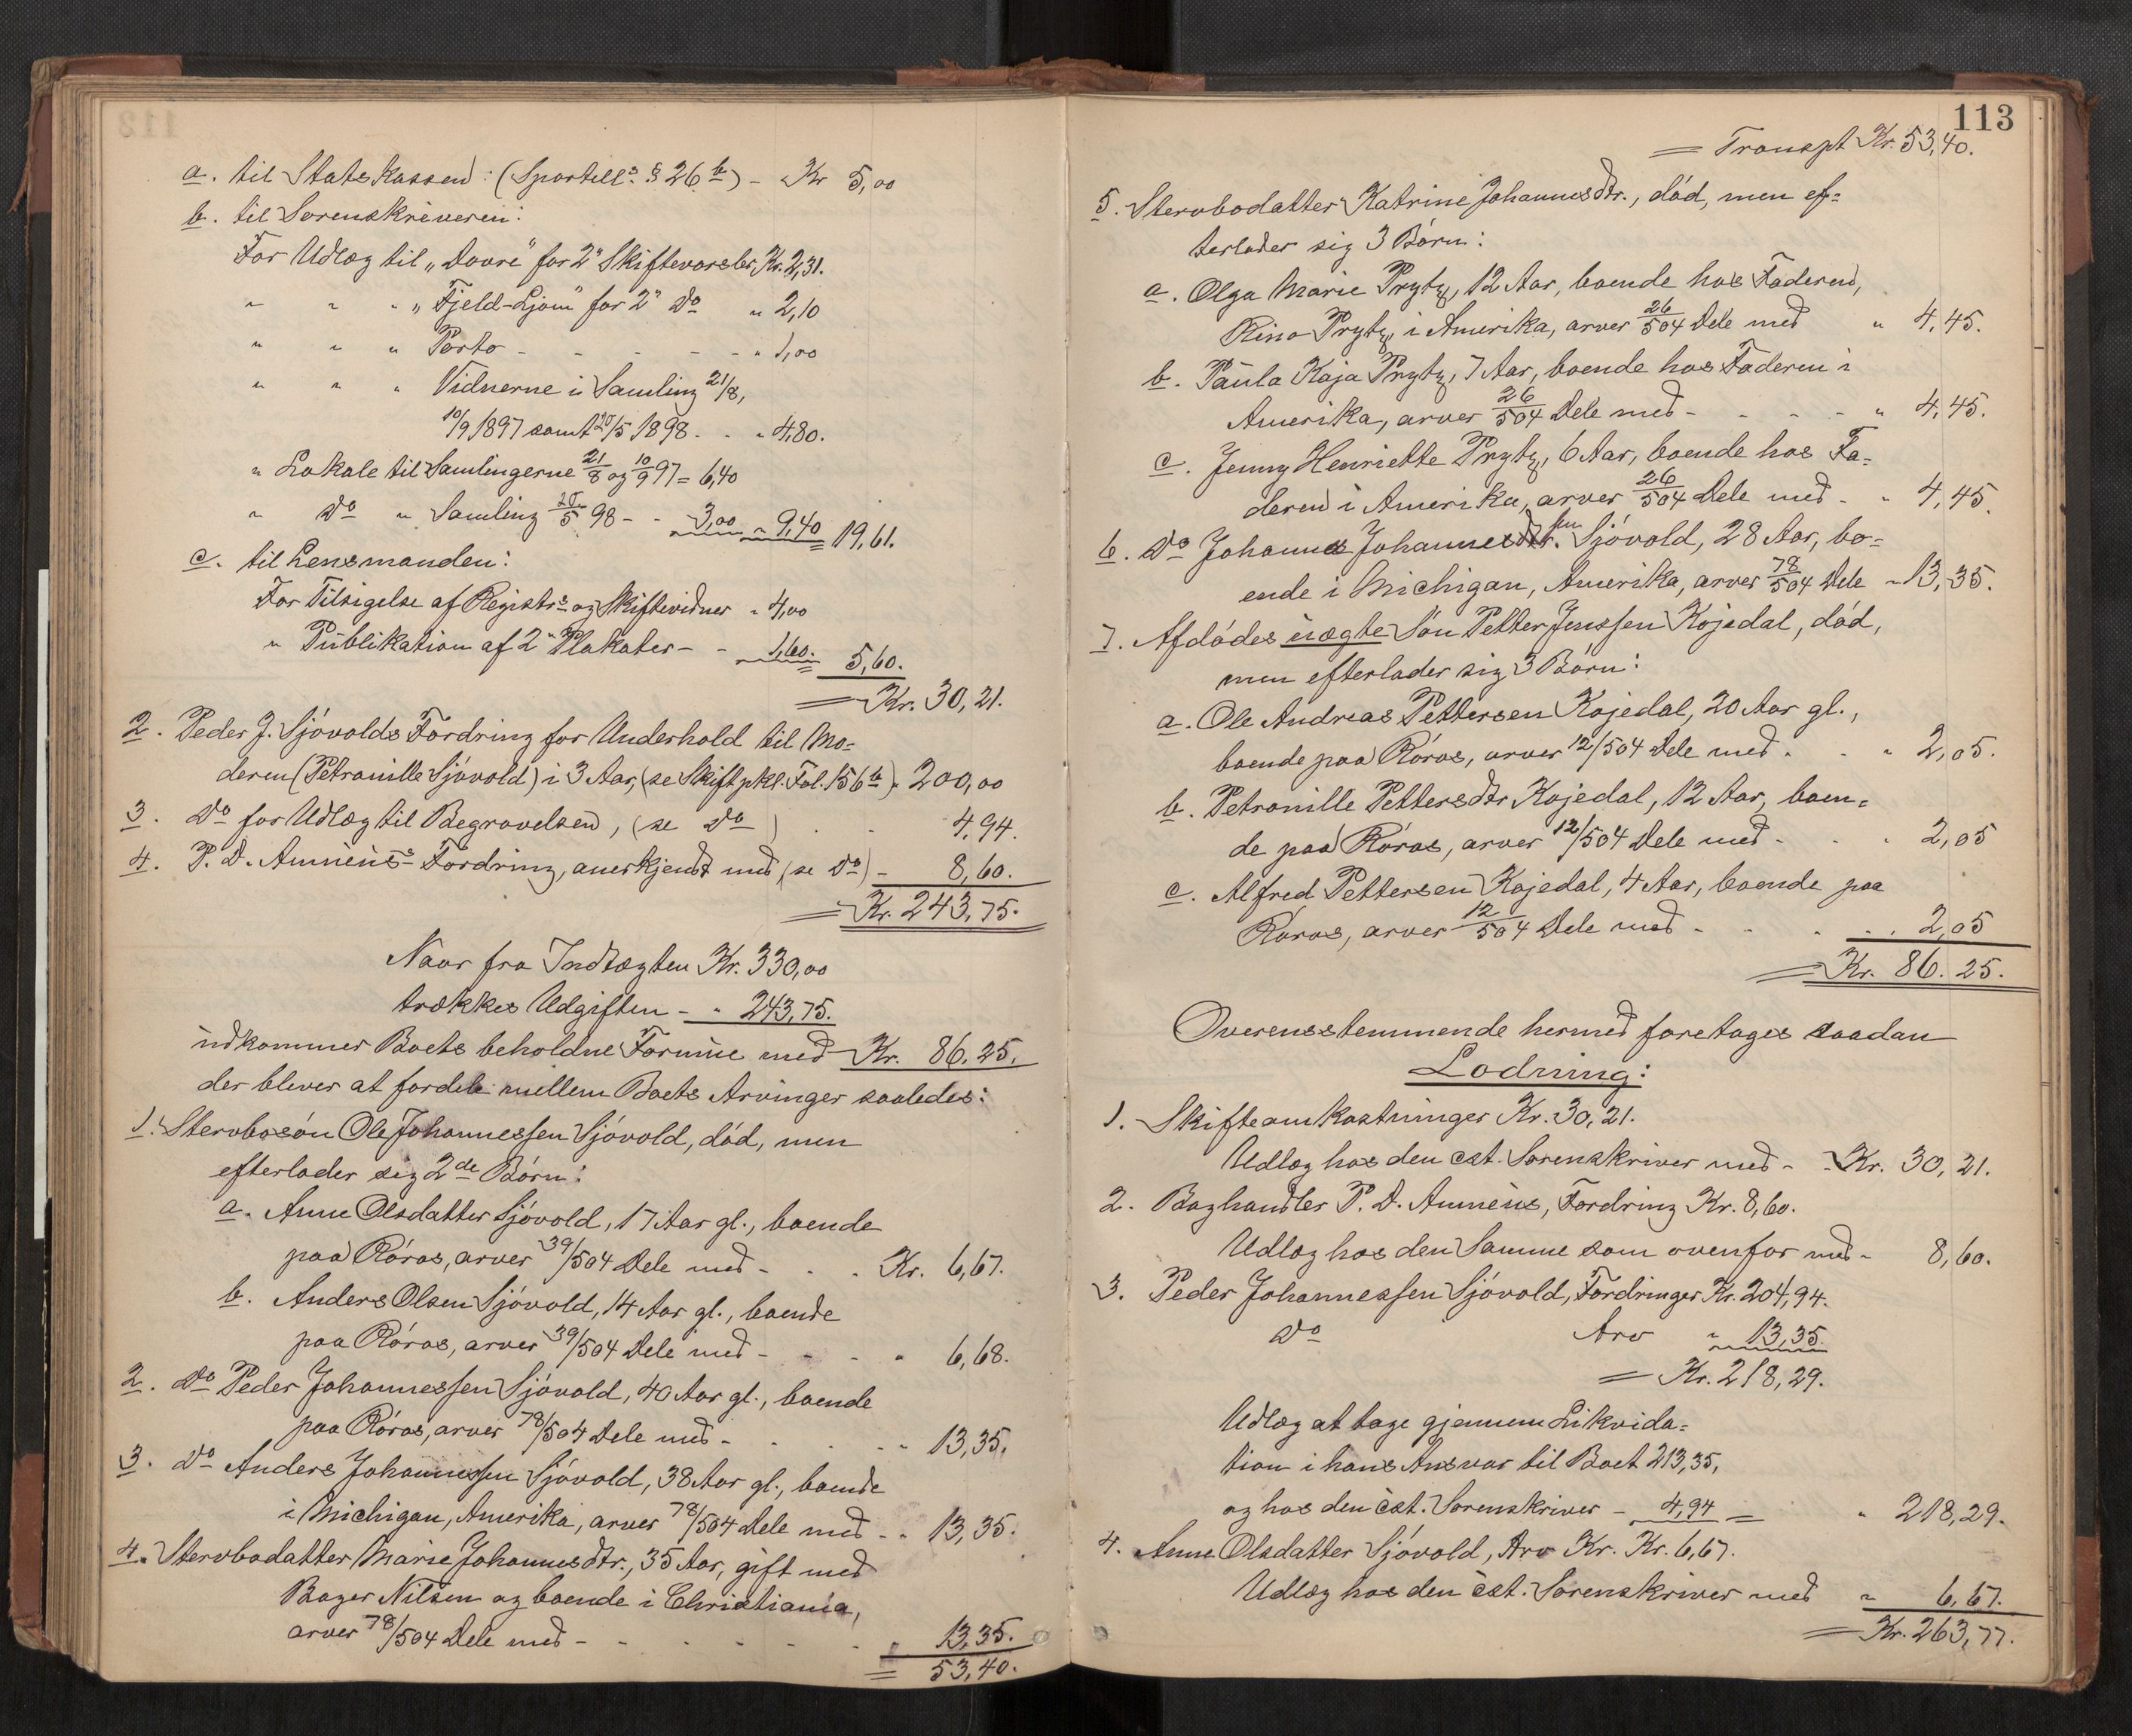 a. til Statskassen: (Sportell: § 26 b) - Kr 5,00
b. til Sorenskriveren:
For Udlæg til „Dovre" for 2" Skiftevarsler, Kr. 2,31.
" " " „Fjeld-Ljom" for 2" Do " 2,10
" " " Porto - - - - - " 1,00
" " " Vidnerne i Samling 21/8,
10/9 1897 samt 25/5 1898 - - " 4,80.
" Lokale til Samlingerne 21/8 og 10/9 97 = 6,40
" Do " Samling 25/5 98 - - 3,00 " 9,40 19,61.
c. til Lensmanden:
For Tilsigelse af Registr: og Skiftevidner " 4,00
" Publikation af 2" Plakater - - 1,60. 5,60.
= Kr. 30,21.
2. Peder J. Sjövolds Fordring for Underhold til Mo=
deren (Petronille Sjövold) i 3 Aar, (se Skiftpkl. Fol. 156 b) " 200,00
3. Do for Udlæg til Begravelsen, (se Do ) . . 4,94.
4. P. D. Amnéus: Fordring, anerkjendt med (se Do) - 8,60.
= Kr. 243,75.
Naar fra Indtægten Kr. 330,00
trækkes Udgiften - " 243,75.
udkommer Boets beholdne Formue med Kr. 86,25.
der bliver at fordele mellem Boets Arvinger saaledes:
1. Stervbosön Ole Johannessen Sjövold, död, men
efterlader sig 2de Börn:
a. Anne Olsdatter Sjövold, 17 Aar gl., boende
paa Röros, arver 39/504 Dele med - - - Kr. 6,67.
b. Anders Olsen Sjövold, 14 Aar gl., boende
paa Röros, arver 39/504 Dele med - - - " 6,68.
2. Do Peder Johannessen Sjövold, 40 Aar gl., boende
paa Röros, arver 78/504 Dele med - - - - " 13,35.
3. Do Anders Johannessen Sjövold, 38 Aar gl., boende
i Michigan, Amerika, arver 78/504 Dele med - " 13,35.
4. Stervbodatter Marie Johannesdtr., 35 Aar, gift med
Bager Nilsen og boende i Christiania,
arver 78/504 Dele med - - - - - - " 13,35.
= 53,40.
113
= Transpt Kr. 53,40.
5. Stervbodatter Katrine Johannesdtr., död, men ef=
terlader sig 3 Börn:
a. Olga Marie Prytz, 12 Aar, boende hos Faderen,
Rino Prytz, i Amerika, arver 26/504 Dele med " 4,45.
b. Paula Kaja Prytz, 7 Aar, boende hos Faderen i
Amerika, arver 26/504 Dele med - - - - " 4,45.
c. Jenny Henriette Prytz, 6 Aar, boende hos Fa=
deren i Amerika, arver 26/504 Dele med - " 4,45.
6. Do Johannes Johannessen Sjövold, 28 Aar, bo=
ende i Michigan, Amerika, arver 78/504 Dele " 13,35.
7. Afdödes uægte Sön Petter Jenssen Kojedal, död,
men efterlader sig 3 Börn:
a. Ole Andreas Pettersen Kojedal, 20 Aar gl.,
boende paa Röros, arver 12/504 Dele med . . " 2,05.
b. Petronille Pettersdtr Kojedal, 12 Aar, boen=
de paa Röros, arver 12/504 Dele med - . " 2,05
c. Alfred Pettersen Kojedal, 4 Aar, boende paa
Röros, arver 12/504 Dele med - - . . . 2,05
= Kr. 86.25.
Overensstemmende hermed foretages saadan
Lodning:
1. Skifteomkostninger Kr. 30,21.
Udlæg hos den cst. Sorenskriver med - Kr. 30,21.
2. Boghandler P. D. Amnéus, Fordring Kr. 8,60.
Udlæg hos den Samme som ovenfor med - 8,60.
3. Peder Johannessen Sjövold, Fordringer Kr. 204,94.
Do Arv " 13,35.
= Kr. 218,29.
Udlæg at tage gjennem Likvida=
tion i hans Ansvar til Boet 213,35,
og hos den cst. Sorenskriver - 4,94 = " 218,29.
4. Anne Olsdatter Sjövold, Arv Kr. Kr. 6,67.
Udlæg hos den cst. Sorenskriver med " 6,67.
= Kr. 263,77.